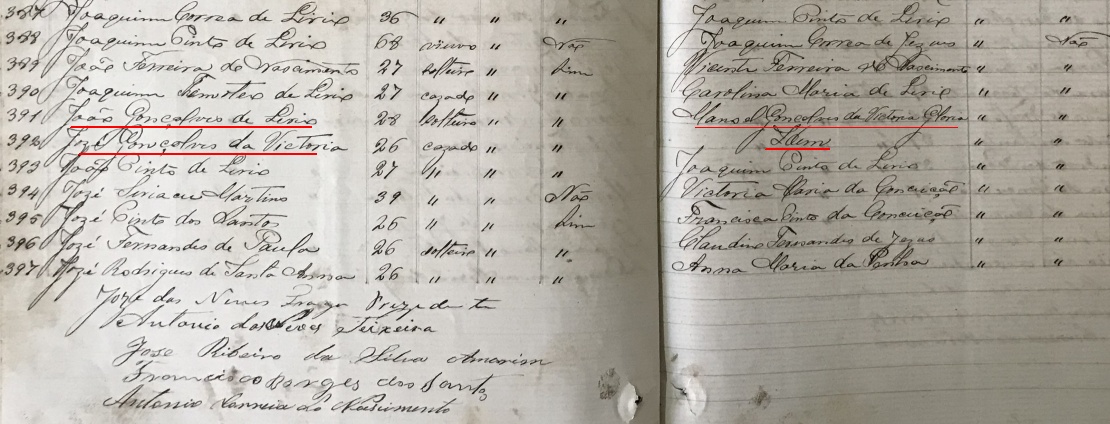 387 Joaquim Correa de Lirio 36 " " Joaquim Pinto de Lirio " "
388 Joaquim Pinto de Lirio 68 viuvo " Não Joaquim Correa de Jezus " Não
389 João Ferreira do Nascimento 27 solteiro " Sim Vicente Ferreira do Nascimento " "
390 Joaquim de Lirio 27 cazado " " Carolina Maria de Lirio " "
391 João Gonçalves de Lirio 28 solteiro " " Manoel Gonçalves da Victoria Gloria " "
392 José Gonçalves da Victoria 26 cazado " " Idem " "
393 João Pinto de Lirio 27 " " " Joaquim Pinto de Lirio " "
394 José Siriaco Martins 39 " " Não Victoria Maria da Conceição " "
395 José Pinto dos Santos 26 " " Sim Francisca Pinto da Conceição " "
396 José Fernandes de Paula 26 solteiro " " Claudino Fernandes de Jezus " "
397 José Rodrigues de Santa Anna 26 " " " Anna Maria da Penha " "
José das Neves Fraga Prezidente
Antonio das Neves Teixeira
José Ribeiro da Silva Amorim
Francisco Borges dos Santos
Antonio Correia do Nascimento